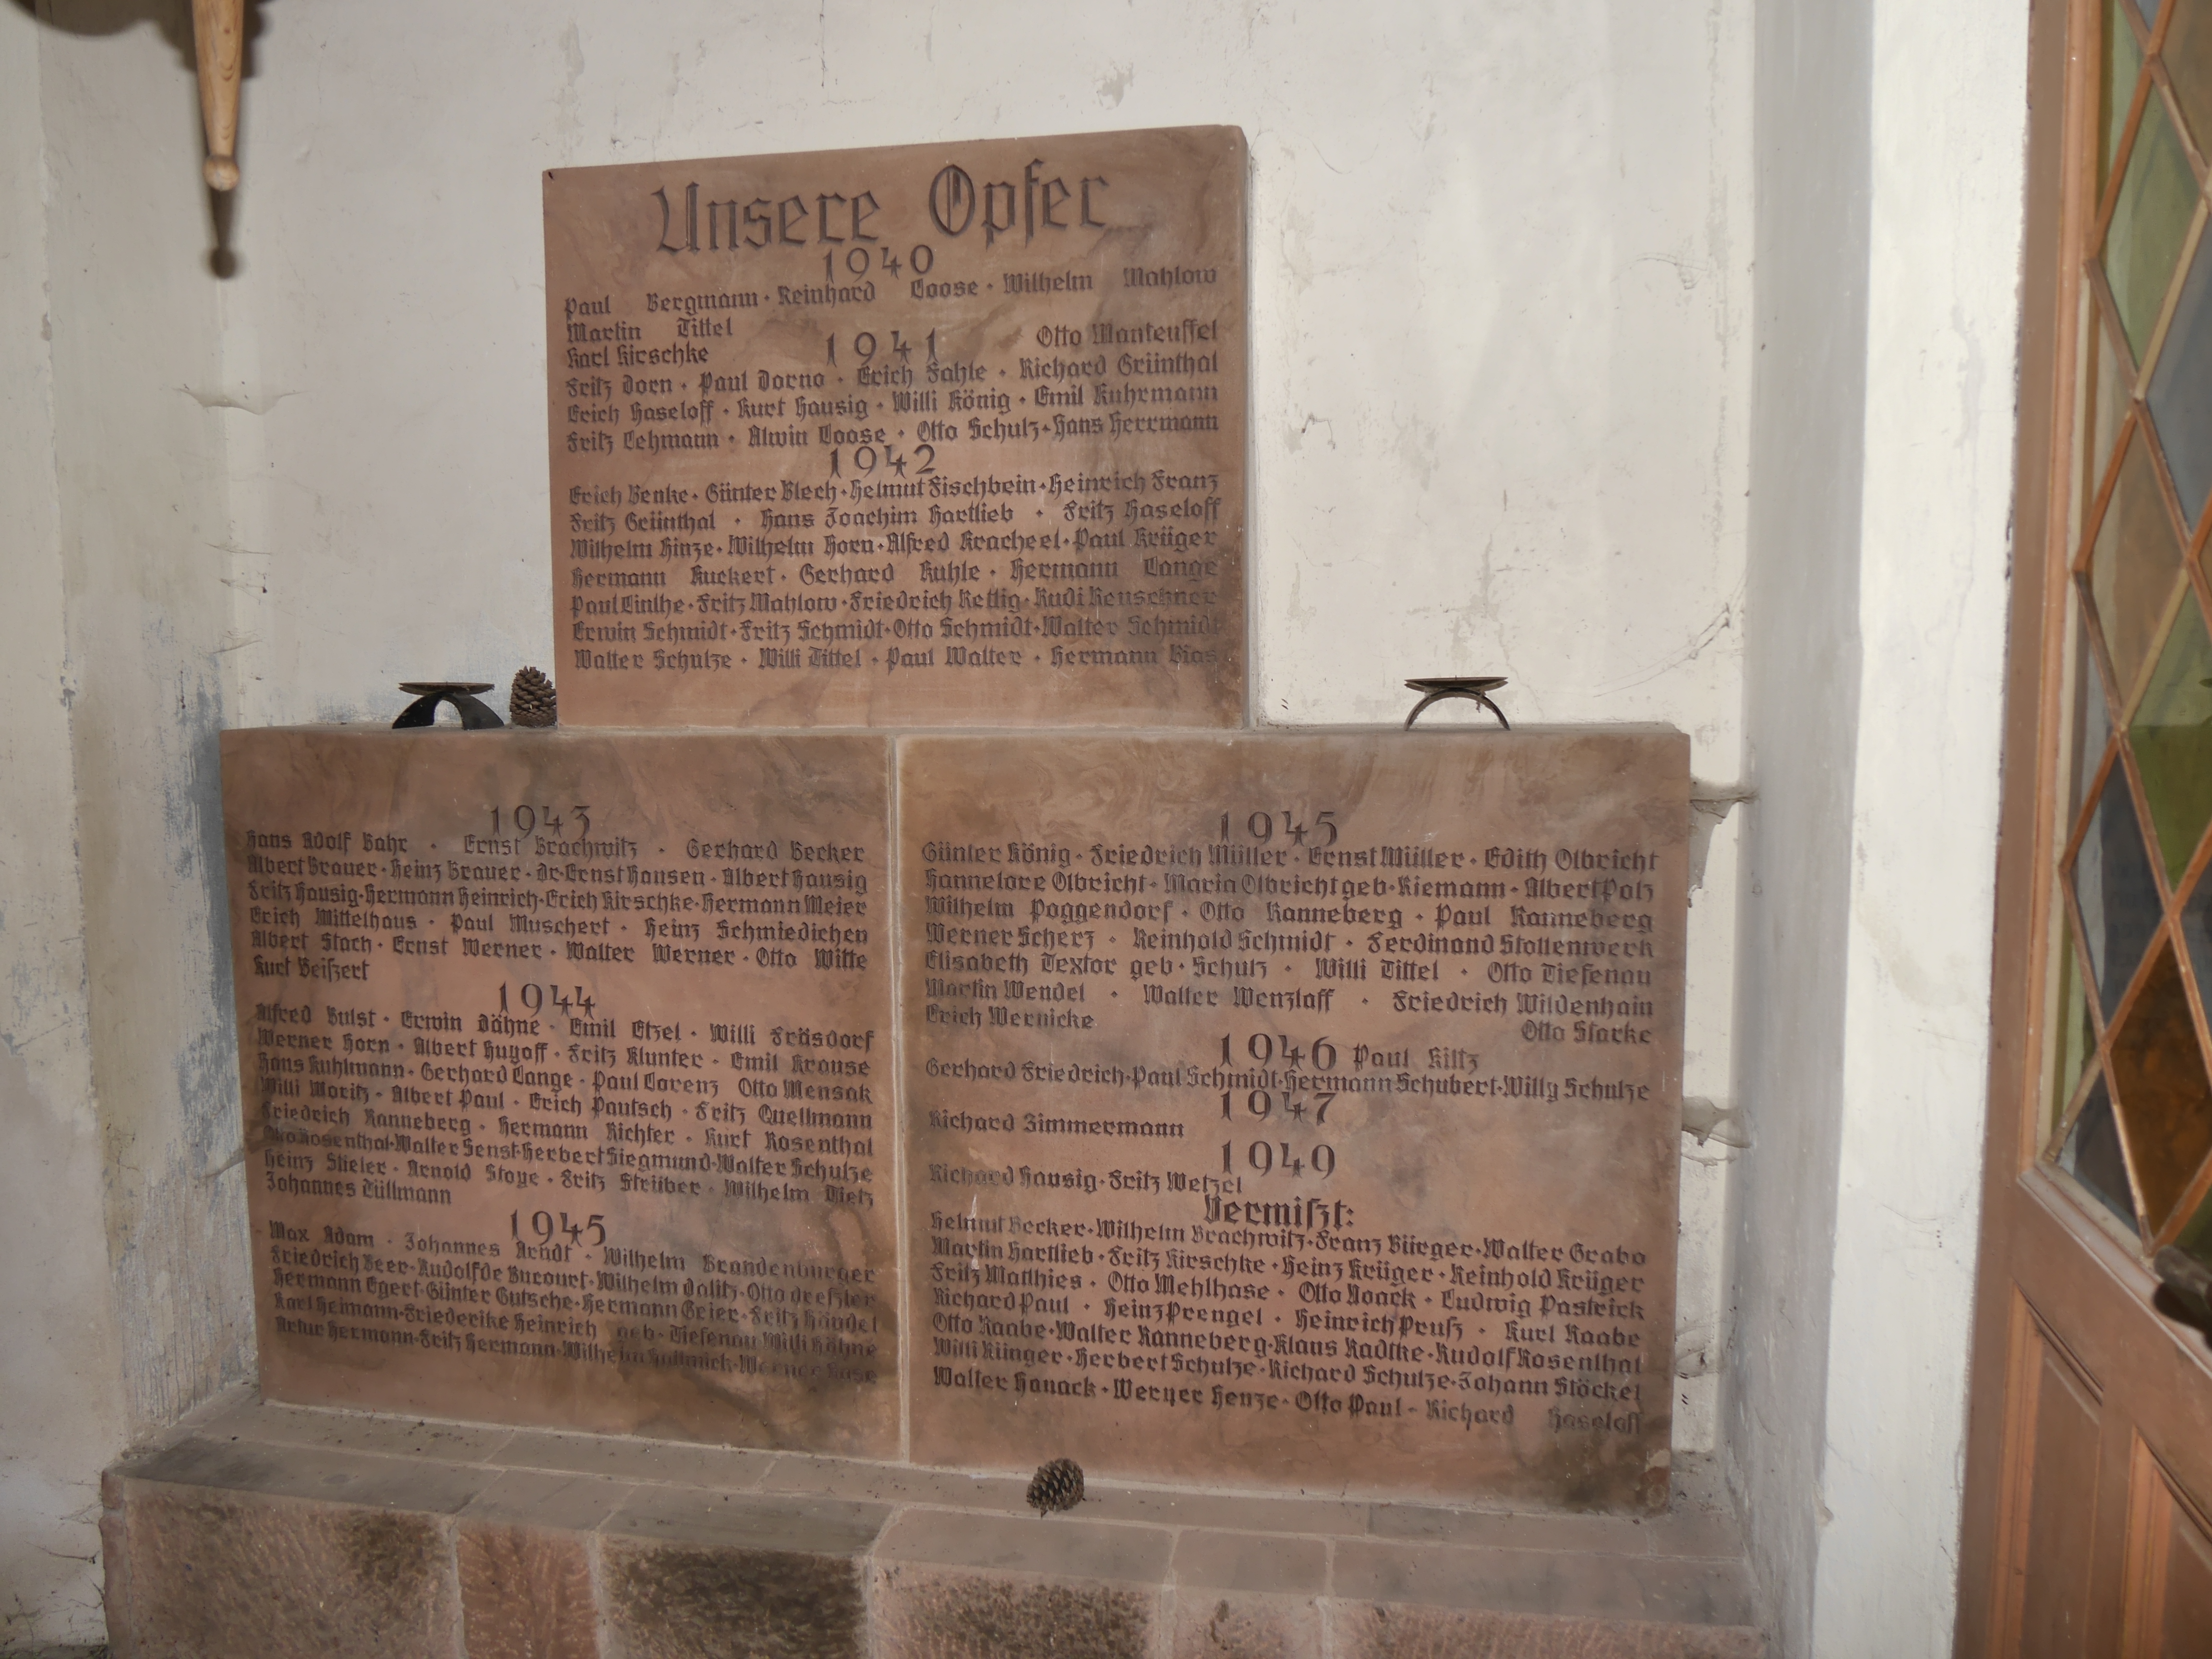 Unsere Opfer
1940
Paul Bergmann · Reinhard Loose · Wilhelm Mahlow
Martin Tittel
1941
Otto Manteuffel
Karl Kirschke
Fritz Dorn · Paul Dorno · Erich Fahle · Richard Grünthal
Erich Haseloff · Kurt Hausig · Willi König · Emil Kuhrmann
Fritz Lehmann · Alwin Loose · Otto Schulz · Hans Herrmann
1942
Erich Benke · Günter Blech · Helmut Fischbein · Heinrich Franz
Fritz Grünthal · Hans Joachim Hartlieb · Fritz Haseloff
Wilhelm Hinze · Wilhelm Horn · Alfred Kracheel · Paul Krüger
Hermann Kuckert · Gerhard Kuhle · Hermann Lange
Paul Linthe · Fritz Mahlow · Friedrich Rettig · Rudi Renschner
Erwin Schmidt · Fritz Schmidt · Otto Schmidt · Walter Schmidt
Walter Schulze · Willi Tittel · Paul Walter · Hermann Bias
1943
Hans Adolf Bahr · Ernst Brachwitz · Gerhard Becker
Albert Brauer · Heinz Brauer · Dr. Ernst Hansen · Albert Hausig
Fritz Hausig · Hermann Heinrich · Erich Kirschke · Hermann Meier
Erich Mittelhaus · Paul Muschert · Heinz Schmiedichen
Albert Stach · Ernst Werner · Walter Werner · Otto Witte
Kurt Beiszert
1944
Alfred Bulst · Erwin Dähne · Emil Etzel · Willi Fräsdorf
Werner Horn · Albert Huyoff · Fritz Klunter · Emil Krause
Hans Kuhlmann · Gerhard Lange · Paul Lorenz Otto Mensak
Willi Moritz · Albert Paul · Erich Pautsch · Fritz Quellmann
Friedrich Ranneberg · Hermann Richter · Kurt Rosenthal
Otto Rosenthal · Walter Senst · Herbert Siegmund · Walter Schulze
Heinz Stieler · Arnold Stoye · Fritz Strüber · Wilhelm Tietz
Johannes Tüllmann
1945
Max Adam · Johannes Arndt · Wilhelm Brandenburger
Friedrich Beer · Rudolf de Bucourt · Wilhelm Dalitz · Otto Dreszler
Hermann Egert · Günter Gutsche · Hermann Geier · Fritz Händel
Karl Heimann · Friederike Heinrich geb. Tiefenau Willi Höhne
Artur Hermann · Fritz Hermann · Wilhelm Werner Kase
1945
Günter König · Friedrich Müller · Ernst Müller · Edith Olbricht
Hannelore Olbricht · Maria Olbricht geb · Riemann · Albert Polz
Wilhelm Poggendorf · Otto Ranneberg · Paul Ranneberg
Werner Scherz · Reinhold Schmidt · Ferdinand Stollenwerk
Elisabeth Textor geb · Schulz · Willi Tittel · Otto Tiefenau
Martin Wendel · Walter Wenzlaff · Friedrich Wildenhain
Erich Wernicke
Otto Starke
1946 Paul Kiltz
Gerhard Friedrich · Paul Schmidt · Hermann Schubert · Willy Schulze
1947
Richard Zimmermann
1949
Richard Hausig · Fritz Wetzel
Vermiszt:
Helmut Becker · Wilhelm Brachwitz · Franz Bürger · Walter Grabo
Martin Hartlieb · Fritz Kirschke · Heinz Krüger · Reinhold Krüger
Fritz Matthies · Otto Mehlhase · Otto Noack · Ludwig Pastrick
Richard Paul · Heinz Prengel · Heinrich Prusz · Kurt Raabe
Otto Raabe · Walter Ranneberg · Klaus Radtke · Rudolf Rosenthal
Willi Rünger · Herbert Schulze · Richard Schulze · Johann Stöckel
Walter Hanack · Werner Henze · Otto Paul - Richard Haseloff